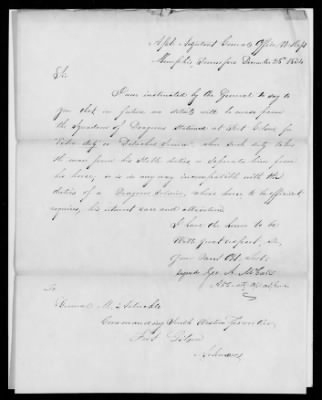 Asst Adjutant Generals Office, W. Dept
Memphis, Tennessee December 28th 1834
Sir
I am instructed by the General to say to
you that in future no details will be made from
the Squadron of Dragoons stationed at Fort Gibson for
Extra duty or Detached Service, when such duty takes
the man from his Stable duties or separates him from
his horse, or is in any way incompatible with the
duties of a Dragoon Soldier, whose horse to be efficient
requires his utmost care and attention
I have the honor to be
With great respect, Sir,
Your Servt
signed Geo. A. McCall
To
General M. Arbuckle
Commanding South Western Frontier
Fort Gibson
Arkansas